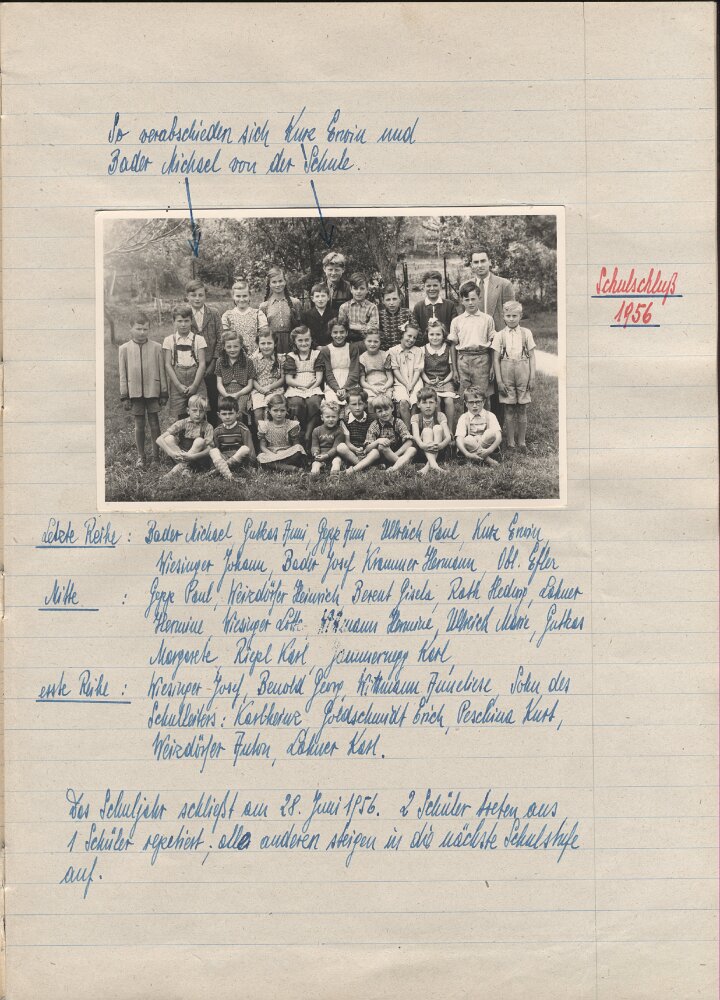 So verabschieden sich Kurz Erwin und
Bader Michael von der Schule.
Schulschluß
1956
Letzte Reihe : Bader Michael, Gutkas Anni, Gepp Anni, Ullreich Paul, Kurz Erwin,
Wiesinger Johann, Bader Josef, Krammer Hermann, Obl. Efler
Mitte : Gepp Paul, Weizdörfer Heinrich, Berent Gisela, Rath Hedwig, Lahner
Hermine, Wiesinger Lotte, Wittmann Hermine, Ullreich Marie, Gutkas
Margarete, Riepl Karl, Jammernegg Karl,
erste Reihe : Wiesinger Josef, Benold Georg, Wittmann Anneliese, Sohn des
Schulleiters : Karlheinz, Goldschmidt Erich, Peschina Kurt,
Weizdörfer Anton, Lahner Karl.
Das Schuljahr schließt am 28. Juni 1956. 2 Schüler treten aus
1 Schüler repetiert, alle anderen steigen in die nächste Schulstufe
auf.